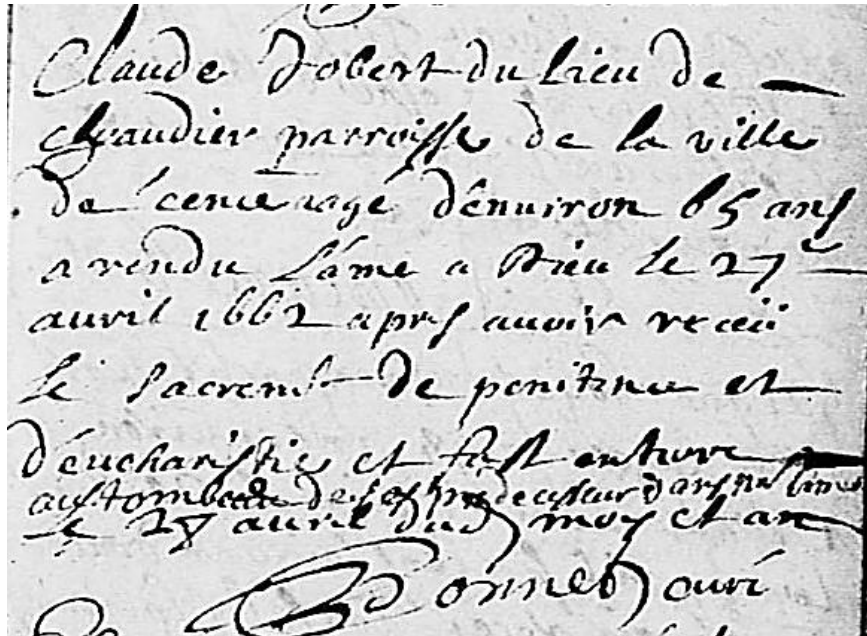 Claude Jobert du lieu de
chaudier parroisse de la ville
de agé d'enuiron 65 ans
a rendu l'áme a Dieu le 27e
auril 1662 apres auoir receu
le sacremt de penitence et
d'eucharistie et fust enturre
aus tombeau de ses predecesseur dans
le 28 auril dud moys et an
Bonnet curé